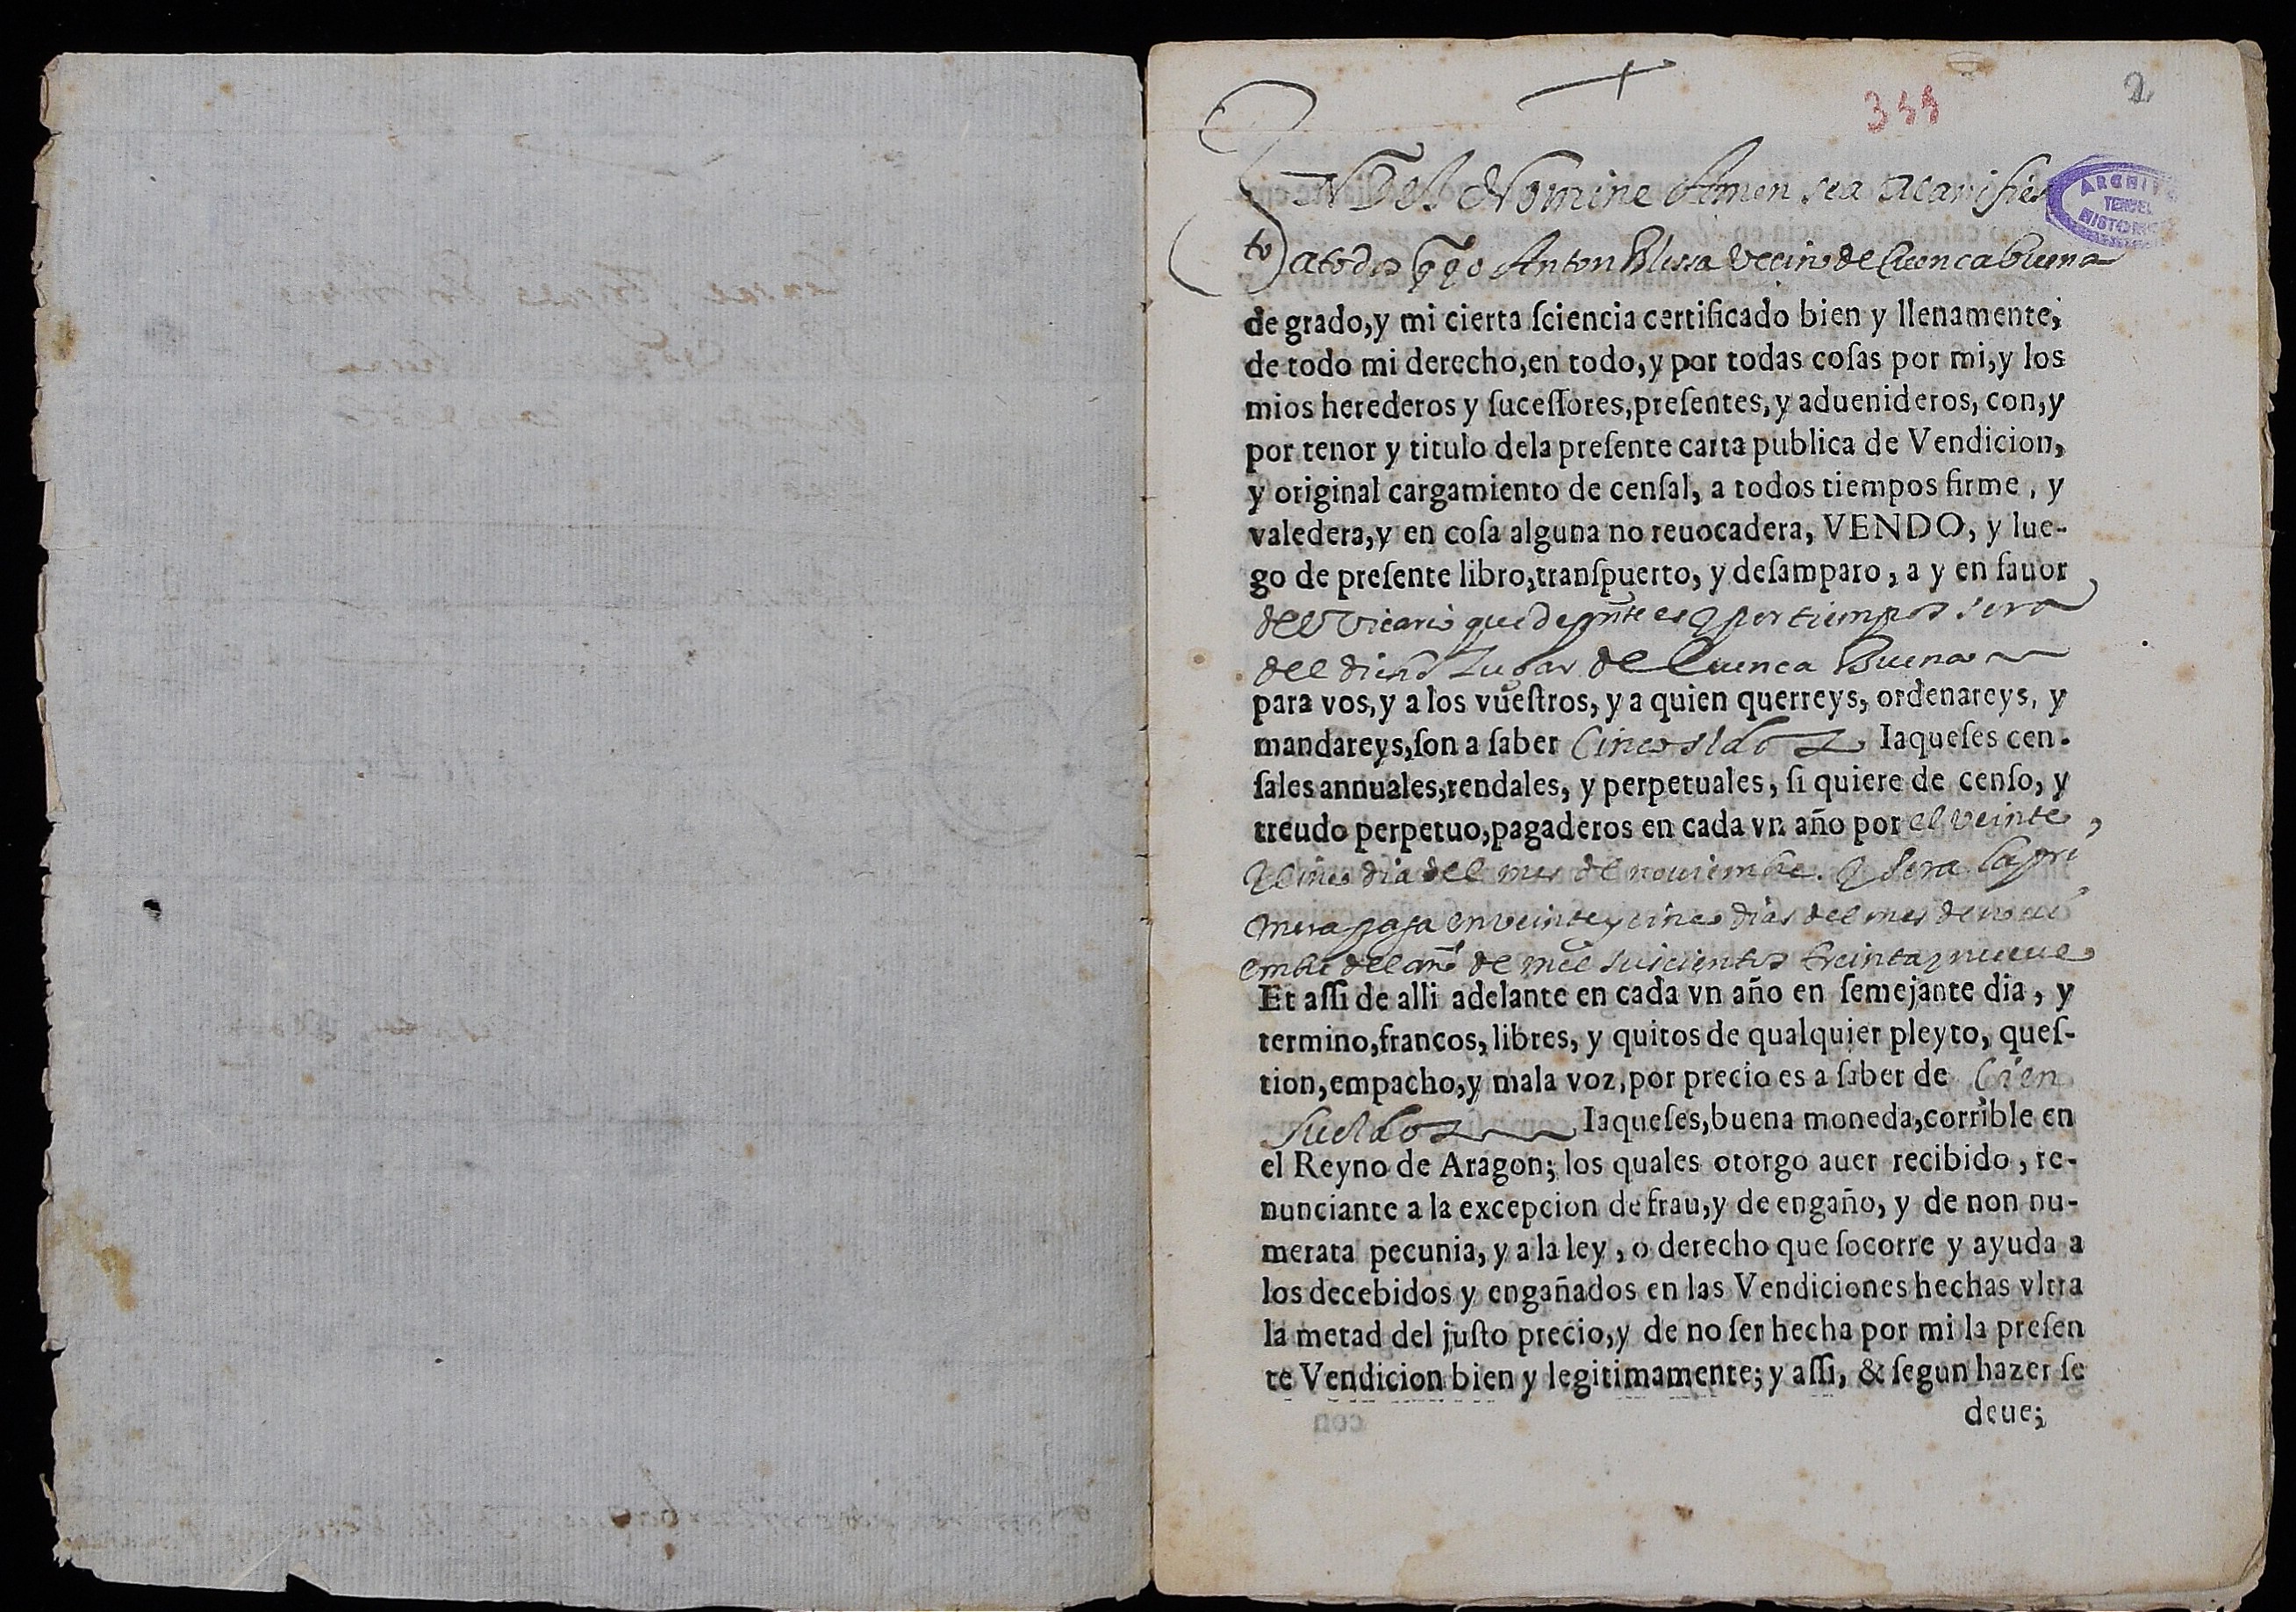 2
IN Dei Nomine Amen sea manifies
to a todos q yo Anton vecino de Cuencabuena
de grado,y mi cierta ſciencia certificado bien y llenamente,
de todo mi derecho,en todo,y por todas coſas por mi,y los
mios herederos y ſuceſſores,preſentes,y aduenideros, con,y
por tenor y titulo dela preſente carta publica de Vendicion,
y original cargamiento de cenſal, a todos tiempos firme , y
valedera,y en coſa alguna no reuocadera, VENDO, y lue-
go de preſente libro,tranſpuerto, y deſamparo , a y en fauor
del Vicario que de pnte es y por tiempos sera
del dicho Lugar de Cuenca Buena
para vos,y a los vueſtros, y a quien querreys, ordenareys, y
mandareys,ſon a ſaber Cinco sldos Iaqueſes cen-
ſales annuales,rendales, y perpetuales, ſi quiere de cenſo, y
treudo perpetuo,pagaderos en cada vn año por el veinte
y cinco dia del mes de nouiembre. y sera la pri
mera paga en veinte y cinco dias del mes de noui
embre del año de mil seicientos treinta y nueue
Et aſſi de alli adelante en cada vn año en ſemejante dia , y
termino,francos, libres, y quitos de qualquier pleyto, queſ-
tion,empacho,y mala voz,por precio es a ſaber de Cien
sueldos Iaqueſes,buena moneda,corrible en
el Reyno de Aragon; los quales otorgo auer recibido , re-
nunciante a la excepcion de frau,y de engaño, y de non nu-
merata pecunia, y a la ley , o derecho que ſocorre y ayuda a
los decebidos y engañados en las Vendiciones hechas vltra
la metad del juſto precio,y de no ſer hecha por mi la preſen
te Vendicion bien y legitimamente; y aſſi, & ſegun hazer ſe
deue;